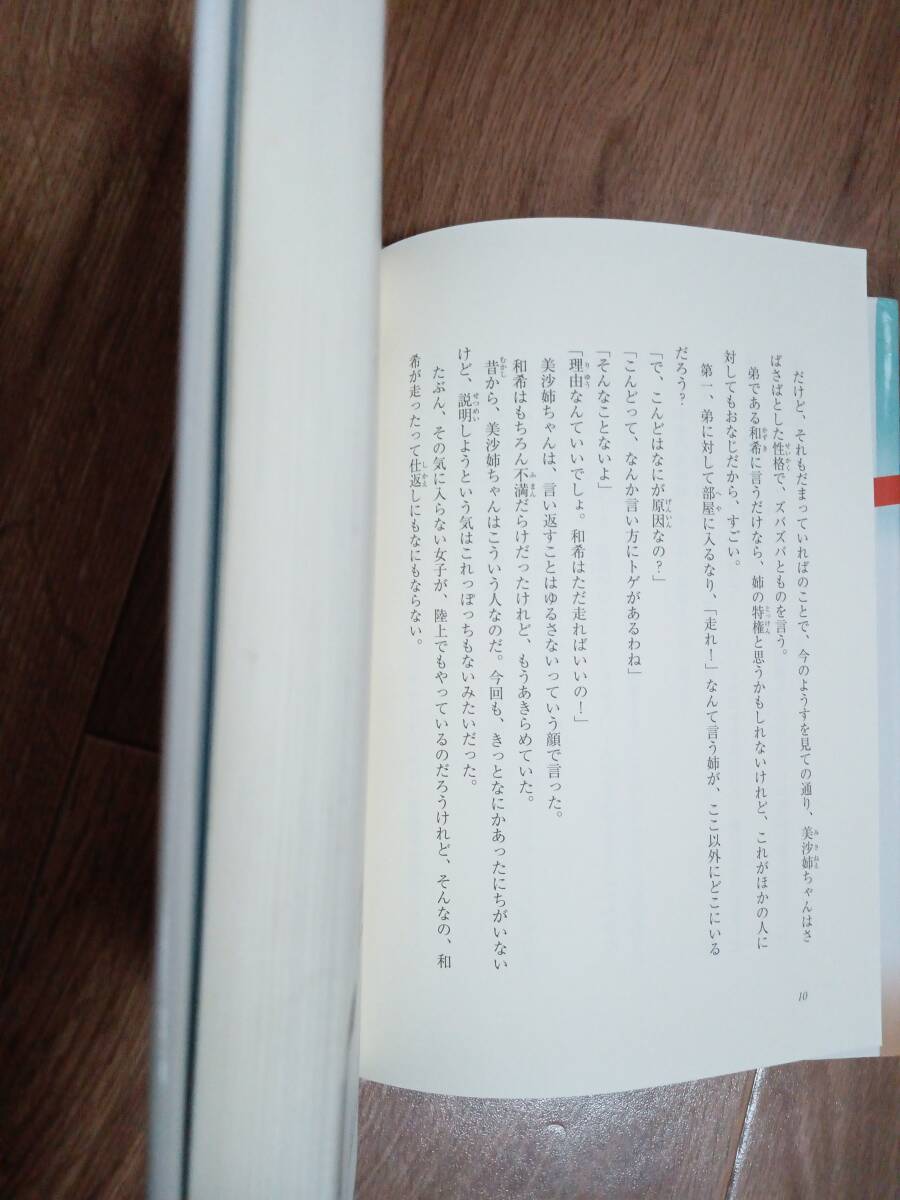 だけど、それもだまっていればのことで、今のようすを見ての通り、美沙姉ちゃんはさ
ばさばとした性格で、ズバズバとものを言う。
弟である和希に言うだけなら、姉の特権と思うかもしれないけれど、これがほかの人に
対してもおなじだから、すごい。
第一、弟に対して部屋に入るなり、「走れ！」なんて言う姉が、ここ以外にどこにいる
だろう？
「で、こんどはなにが原因なの？」
「こんどって、なんか言い方にトゲがあるわね」
「そんなことないよ」
「理由なんていいでしょ。和希はただ走ればいいの！」
美沙姉ちゃんは、言い返すことはゆるさないっていう顔で言った。
和希はもちろん不満だらけだったけれど、もうあきらめていた。
昔から、美沙姉ちゃんはこういう人なのだ。今回も、きっとなにかあったにちがいない
けど、説明しようという気はこれっぽっちもないみたいだった。
たぶん、その気に入らない女子が、陸上でもやっているのだろうけれど、そんなの、和
希が走ったって仕返しにもなにもならない。
10